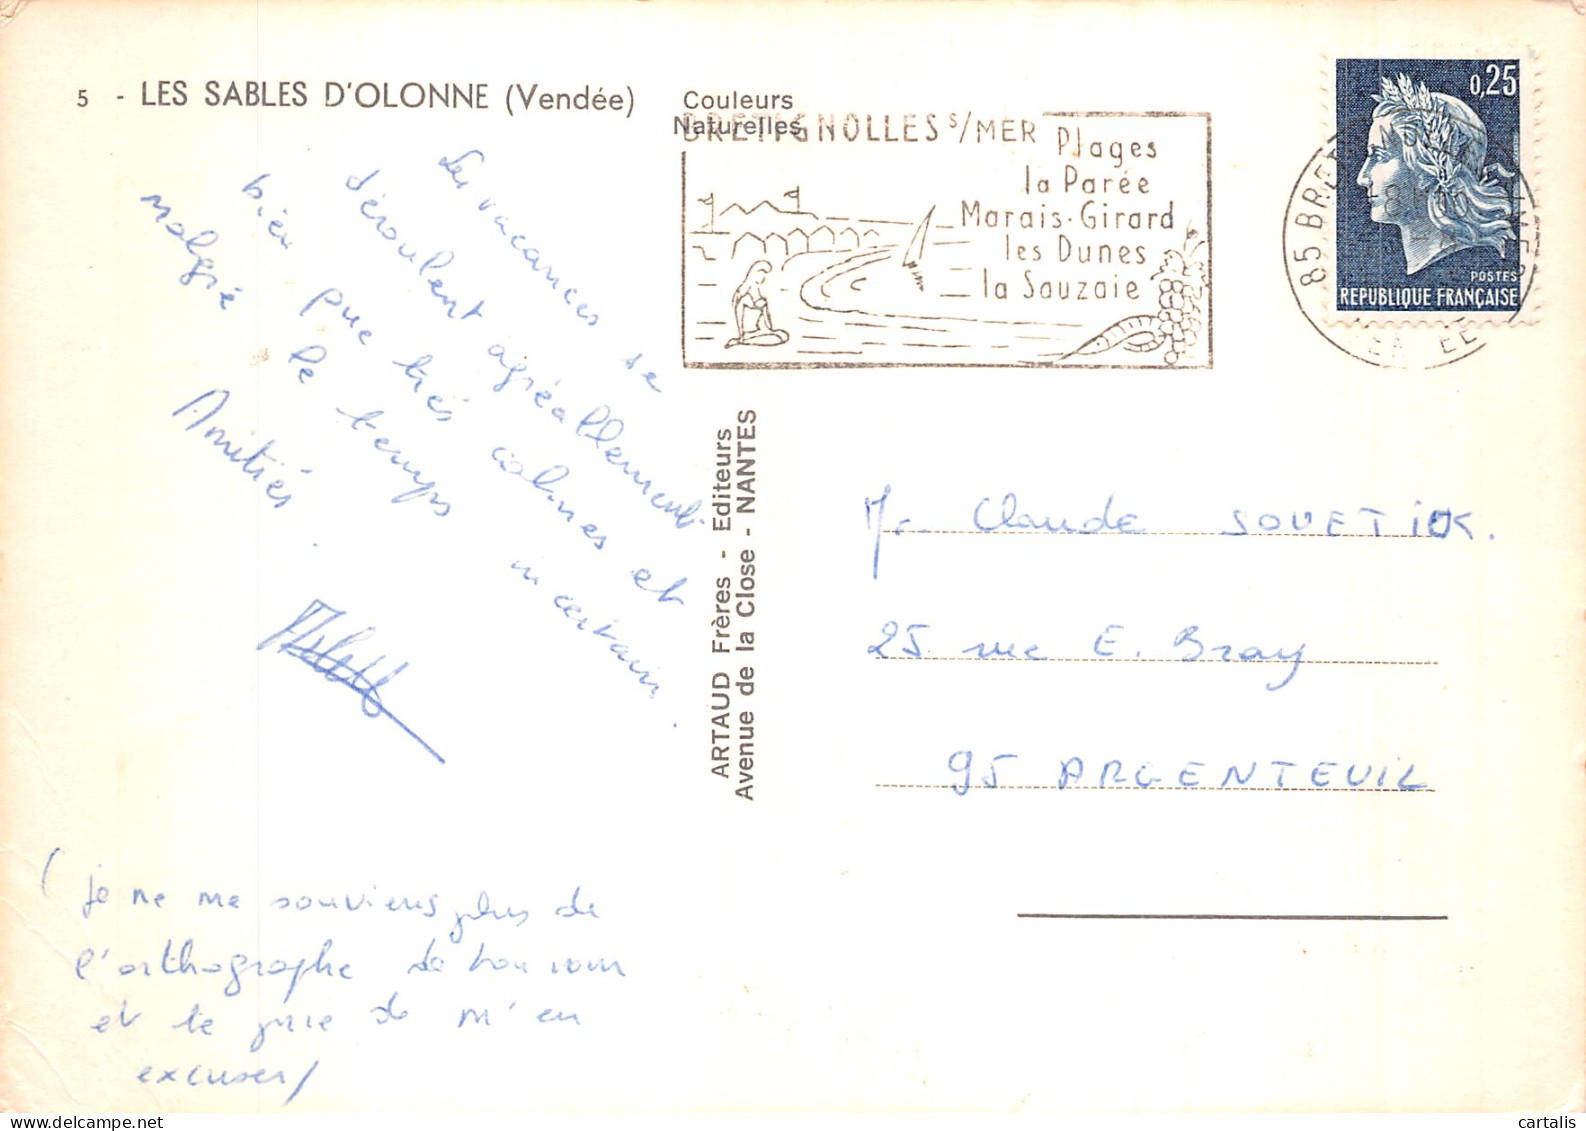 5 - LES SABLES D'OLONNE (Vendée)
Couleurs
Naturelles
BRETIGNOLLES s/MER
Plages
la Parée
Marais-Girard
les Dunes
la Sauzaie
0,25
POSTES
REPUBLIQUE FRANÇAISE
85 BRET
Les vacances se
déroulent agréablement
bien que très calmes et
malgré le temps incertain.
Amitiés
ARTAUD Frères - Editeurs
Avenue de la Close - NANTES
Mr Claude SOUETIOK.
25 rue E. Bray
95 ARGENTEUIL
(je ne me souviens plus de
l'orthographe de ton nom
et te prie de m'en
excuser)
cartalis